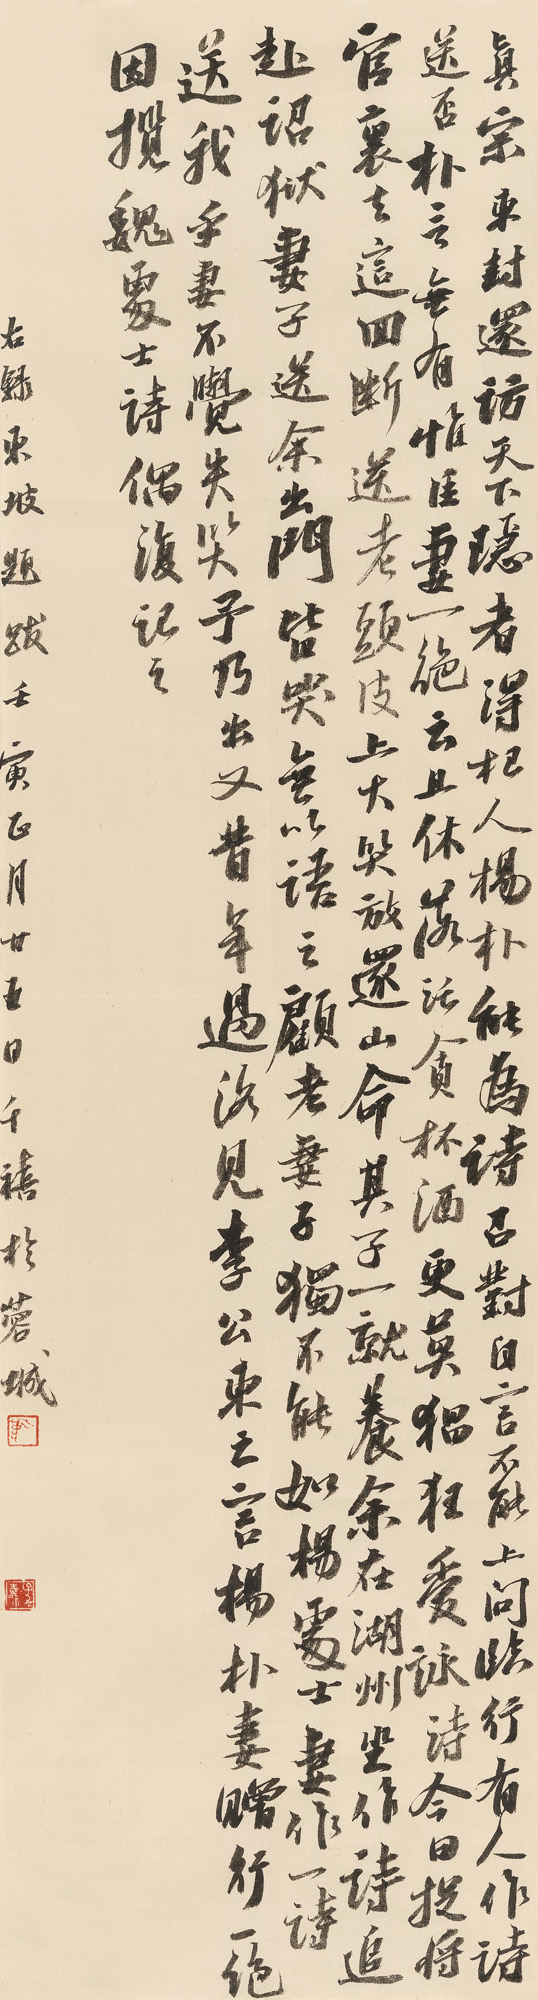 真宗東封還訪天下隱者得杞人楊朴能為詩召對自言不能上問臨行有人作詩
送否朴言無有惟臣妻一絕云且休落託貪杯酒更莫猖狂愛詠詩今日捉將
官裏去這回斷送老頭皮上大笑放還山命其子一就養余在湖州坐作詩追
赴詔獄妻子送余出門皆哭無以語之顧老妻子獨不能如楊處士妻作一詩
送我乎妻不覺失笑予乃出又昔年過洛見李公東之言楊朴妻贈行一絕
因攬魏處士詩偶復記之
右錄東坡題跋壬寅正月廿五日千禧於蓉城